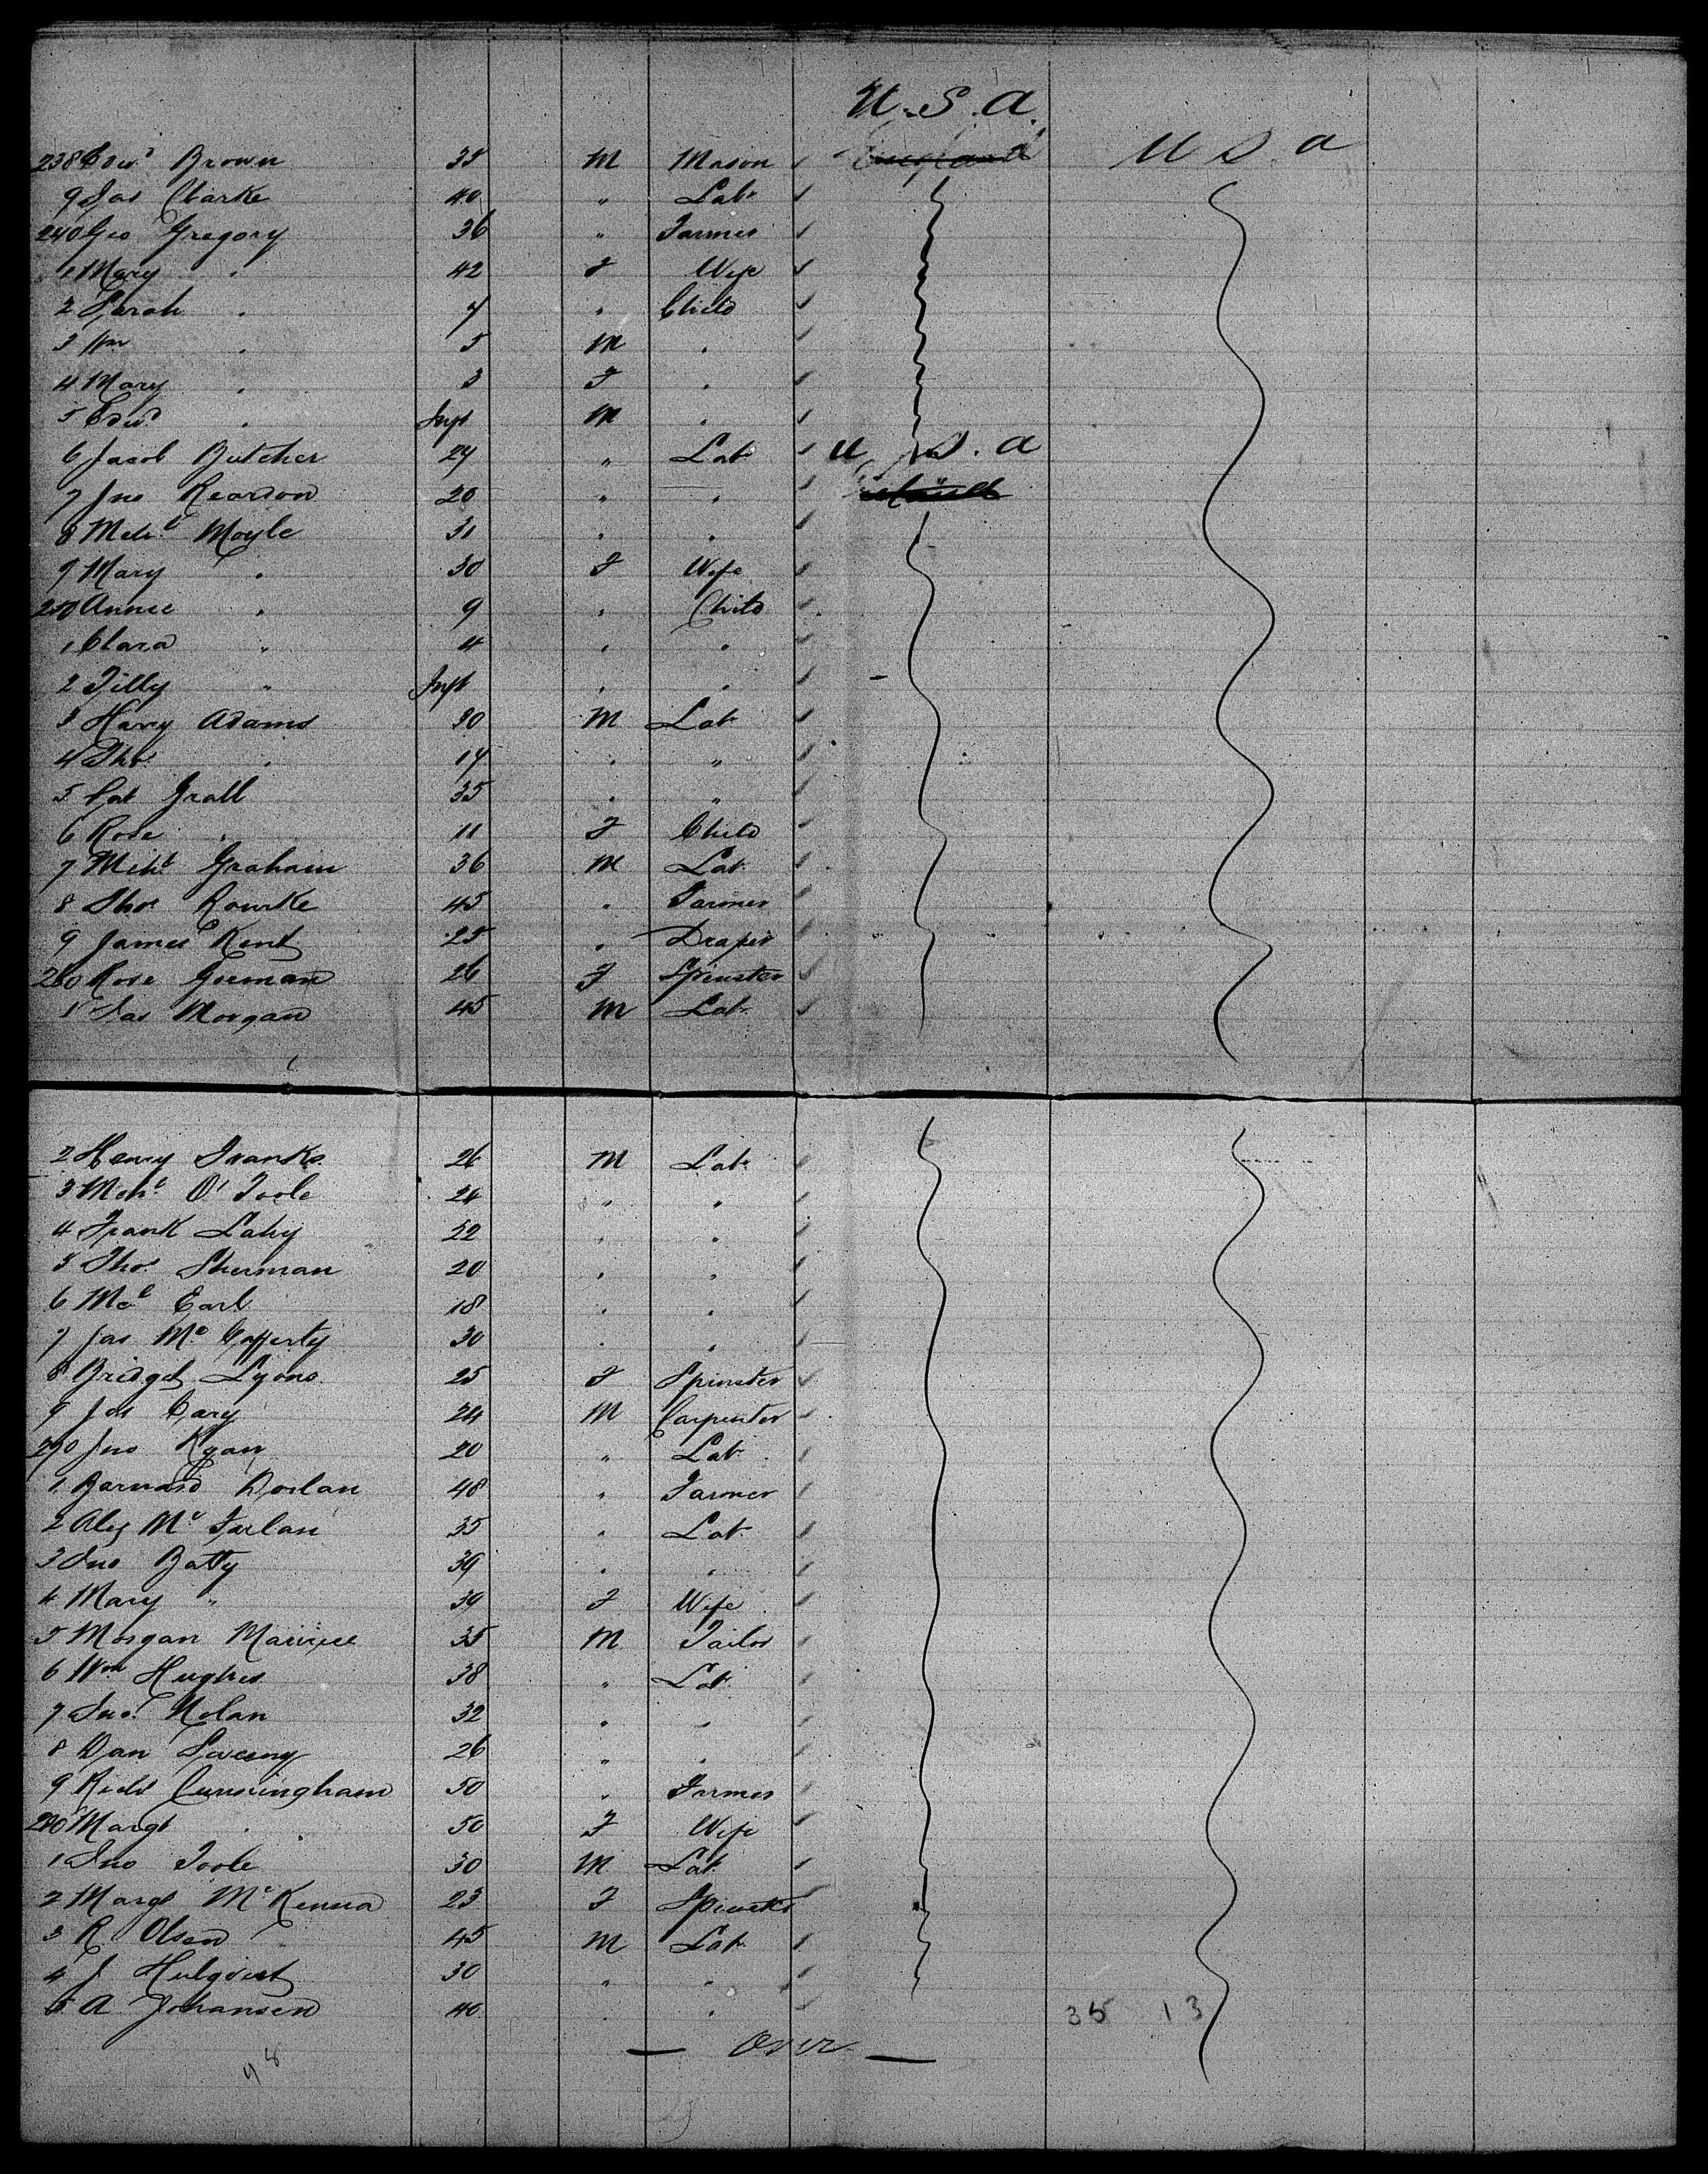 U.S.A.
238 Edwd Brown 35 M Mason England U S. a
9 Jas Clarke 40 " Labr
240 Geo Gregory 36 " Farmer
1 Mary " 42 F Wife
2 Sarah " 7 " Child
3 Wm " 5 M "
4 Mary " 3 F "
5 Edwd " Inft M "
6 Jacob Butcher 29 " Labr U. S. a
7 Jno Reardon 20 " "
8 Michl Moyle 31 " "
9 Mary " 30 F Wife
250 Annie " 9 " Child
1 Clara " 4 " "
2 Tilly " Inft " "
3 Harry Adams 30 M Labr
4 Thos " 14 " "
5 Pat Grall 35 " "
6 Rose " 11 F Child
7 Michl Graham 36 M Labr
8 Thos Rourke 45 " Farmer
9 James Kent 25 " Draper
260 Rose Gorman 26 F Spinster
1 Jas Morgan 45 M Labr
2 Henry Franks 26 M Labr
3 Mchl O'Toole 24 " "
4 Frank Lahy 22 " "
5 Thos Sherman 20 " "
6 Mcl Earl 18 " "
7 Jas McCafferty 30 " "
8 Bridget Lyons 25 F Spinster
9 Jas Cary 24 M Carpenter
270 Jno Ryan 20 " Labr
1 Barnard Doolan 48 " Farmer
2 Alex McFarlan 35 " Labr
3 Jno Batty 39 " "
4 Mary " 39 F Wife
5 Morgan Maurice 35 M Tailor
6 Wm Hughes 38 " Labr
7 Jno. Nolan 32 " "
8 Dan Sweeny 26 " "
9 Richd Cunningham 50 " Farmer
280 Margt " 50 F Wife
1 Jno Toole 30 M Labr
2 Margt McKenna 23 F Spinster
3 R Olsen 45 M Labr
4 J Hulqvist 30 " "
5 A Johansen 40 " " 35 13
— Over —
98